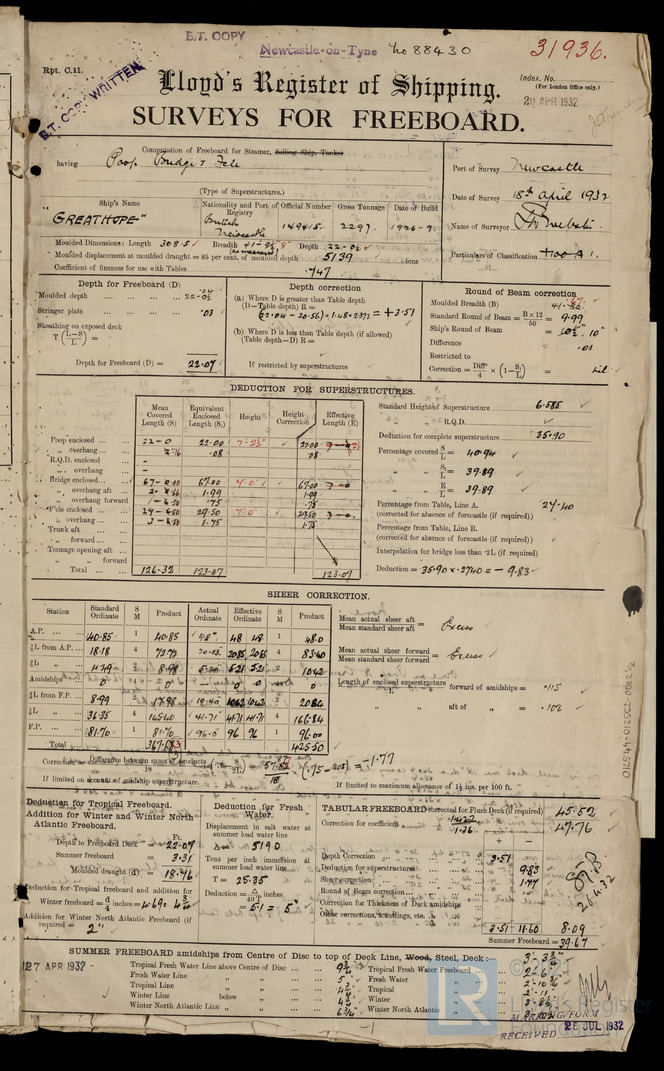 B.T. COPY
Newcastle-on-Tyne No 88430
31936.
Rpt. C.11.
B.T. COPY WRITTEN
Index. No.
(For London Office only.)
Lloyd's Register of Shipping.
20 APR 1932
SURVEYS FOR FREEBOARD.
Computation of Freeboard for Steamer, Sailing Ship, Tanker
having Poop Bridge & Fcle
(Type of Superstructures.)
Port of Survey Newcastle
Date of Survey 18th April 1932
Name of Surveyor
Particulars of Classification +100 A1.
Ship's Name Nationality and Port of Registry Official Number Gross Tonnage Date of Build
"GREATHOPE" British Newcastle 149415 2297 1926-9
Moulded Dimensions: Length 308.5 Breadth Depth
Moulded displacement at moulded draught = 85 per cent. of moulded depth 5139 tons
Coefficient of fineness for use with Tables .747
Depth for Freeboard (D)
Moulded depth
Stringer plate .03
Sheathing on exposed deck
T (L-S/L) =
Depth for Freeboard (D) = 22.07
Depth correction
(a) Where D is greater than Table depth
(D-Table depth) R =
(22.04 - 20.56) = 1.48 × 2.372 = + 3.51
(b) Where D is less than Table depth (if allowed)
(Table depth-D) R =
If restricted by superstructures
Round of Beam correction
Moulded Breadth (B)
Standard Round of Beam = B × 12/50 = 9.99
Ship's Round of Beam = 10"
Difference .01
Restricted to
Correction = Diff/4 × (1 - S/L) = Nil
DEDUCTION FOR SUPERSTRUCTURES.
Mean Covered Length (S) Equivalent Enclosed Length (S₁) Height Height Correction Effective Length (E)
Poop enclosed 22-0 22.00 22.00
„ overhang .08 .08
R.Q.D. enclosed
„ overhang
Bridge enclosed 67-0 67.00 67.00
„ overhang aft 1.99 1.99
„ overhang forward .75 .75
F'cle enclosed 29.50 29.50
„ overhang 1.75 1.75
Trunk aft
„ forward
Tonnage opening aft
„ „ forward
Total 126.32 123.07 123.07
Standard Height of Superstructure 6.585
„ „ R.Q.D.
Deduction for complete superstructure 35.90
Percentage covered S/L = 40.94
„ S₁/L = 39.89
„ E/L = 39.89
Percentage from Table, Line A. 27.40
(corrected for absence of forecastle (if required)
Percentage from Table, Line B.
(corrected for absence of forecastle (if required)
Interpolation for bridge less than .2L (if required)
Deduction = 35.90 × .2740 = - 9.83
SHEER CORRECTION.
Station Standard Ordinate S M Product Actual Ordinate Effective Ordinate S M Product
A.P. 40.85 1 40.85 48" 48 48 1 48.0
⅙L from A.P. 18.18 4 72.73 20.85 4 83.40
⅓L „ 4.49 2 8.98 5.21 5.21 2 10.42
Amidships 0 0 0 0 0
⅓L from F.P. 8.99 2 17.98 2 20.84
⅙L „ 36.35 4 145.40 41.71 41.71 4 166.84
F.P. 81.70 1 81.70 96.0 96 96 1 96.00
Total 367.63 425.50
Mean actual sheer aft / Mean standard sheer aft = Excess
Mean actual sheer forward / Mean standard sheer forward = Excess
Length of enclosed superstructure forward of amidships = .115
„ „ aft of „ = .102
Correction = Difference between sums of products / 18 (.75 - S/2L) = 57.87/18 × (.75 - .205) = -1.77
If limited on account of midship superstructure.
If limited to maximum allowance of 1½ ins. per 100 ft.
Deduction for Tropical Freeboard.
Addition for Winter and Winter North Atlantic Freeboard.
Depth to Freeboard Deck = 22.07
Summer freeboard = 3.31
Moulded draught (d) = 18.76
Deduction for Tropical freeboard and addition for
Winter freeboard = d/4 inches = 4.69 = 4¾
Addition for Winter North Atlantic Freeboard (if required) = 2"
Deduction for Fresh Water.
Displacement in salt water at summer load water line
Δ = 5190
Tons per inch immersion at summer load water line
T = 25.35
Deduction = Δ/40T inches
= 5.1 = 5"
TABULAR FREEBOARD corrected for Flush Deck (if required) 45.52
Correction for coefficient 1.427/1.36 47.76
+ -
Depth Correction 3.51
Deduction for superstructures 9.83
Sheer correction 1.77
Round of Beam correction
Correction for Thickness of Deck amidships
Other corrections, scantlings, etc.
3.51 11.60 8.09
Summer Freeboard = 39.67
26.4.32
SUMMER FREEBOARD amidships from Centre of Disc to top of Deck Line, Wood, Steel, Deck:-
27 APR 1932
Tropical Fresh Water Line above Centre of Disc 9¾
Fresh Water Line „ 5"
Tropical Line „ 4¾
Winter Line below „ 4¾
Winter North Atlantic Line „ 6¾
Tropical Fresh Water Freeboard
Fresh Water „
Tropical „
Winter „
Winter North Atlantic „
MARKING FORM
RECEIVED 26 JUL 1932
LR
Lloyd's Register
Foundation
012549-012562-0062½